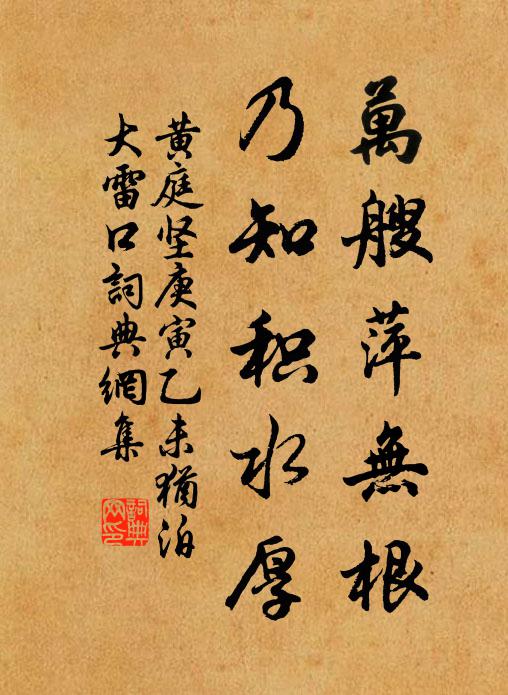 萬艘萍無根
乃知积水厚
黄庭坚庚寅乙未猶泊
大雷口詞典網集
詞典
网印